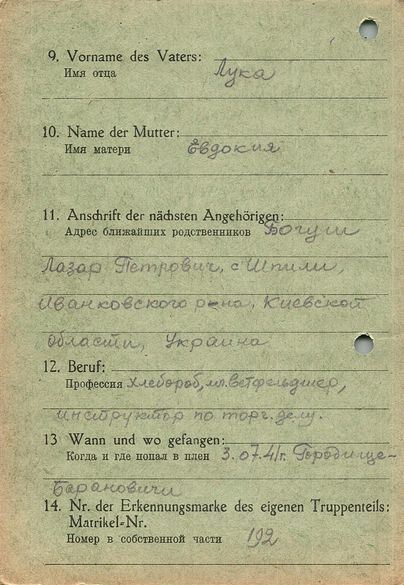 9. Vorname des Vaters:
Имя отца Лука
10. Name der Mutter:
Имя матери Евдокия
11. Anschrift der nächsten Angehörigen:
Адрес ближайших родственников Богуш
Лазар Петрович, с Шпили,
Иванковского р-на, Киевской
области, Украина
12. Beruf:
Профессия хлебороб, мл. ветфельдшер,
инструктор по торг. делу.
13 Wann und wo gefangen:
Когда и где попал в плен 3.07.41г. Городище-
Барановичи
14. Nr. der Erkennungsmarke des eigenen Truppenteils:
Matrikel-Nr.
Номер в собственной части 192